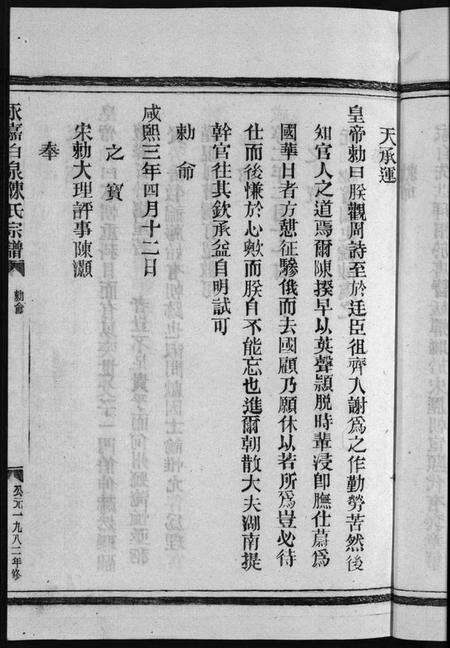 天承運
皇帝勅曰朕觀周詩至於廷臣徂齊人謝爲之作勤勞苦然後
知官人之道焉爾陳揆早以英聲頴脫時輩浸卽膴仕蔚爲
國華日者方懇征驂俄而去國顧乃願休以若所爲豈必待
仕而後慊於心歟而朕自不能忘也進爾朝散大夫湖南提
幹官往其欽承益自明試可
勅命
咸熙三年四月十二日
之寶
宋勅大理評事陳灝
奉
永嘉白泉陳氏宗譜
勅命
公元一九八二年修